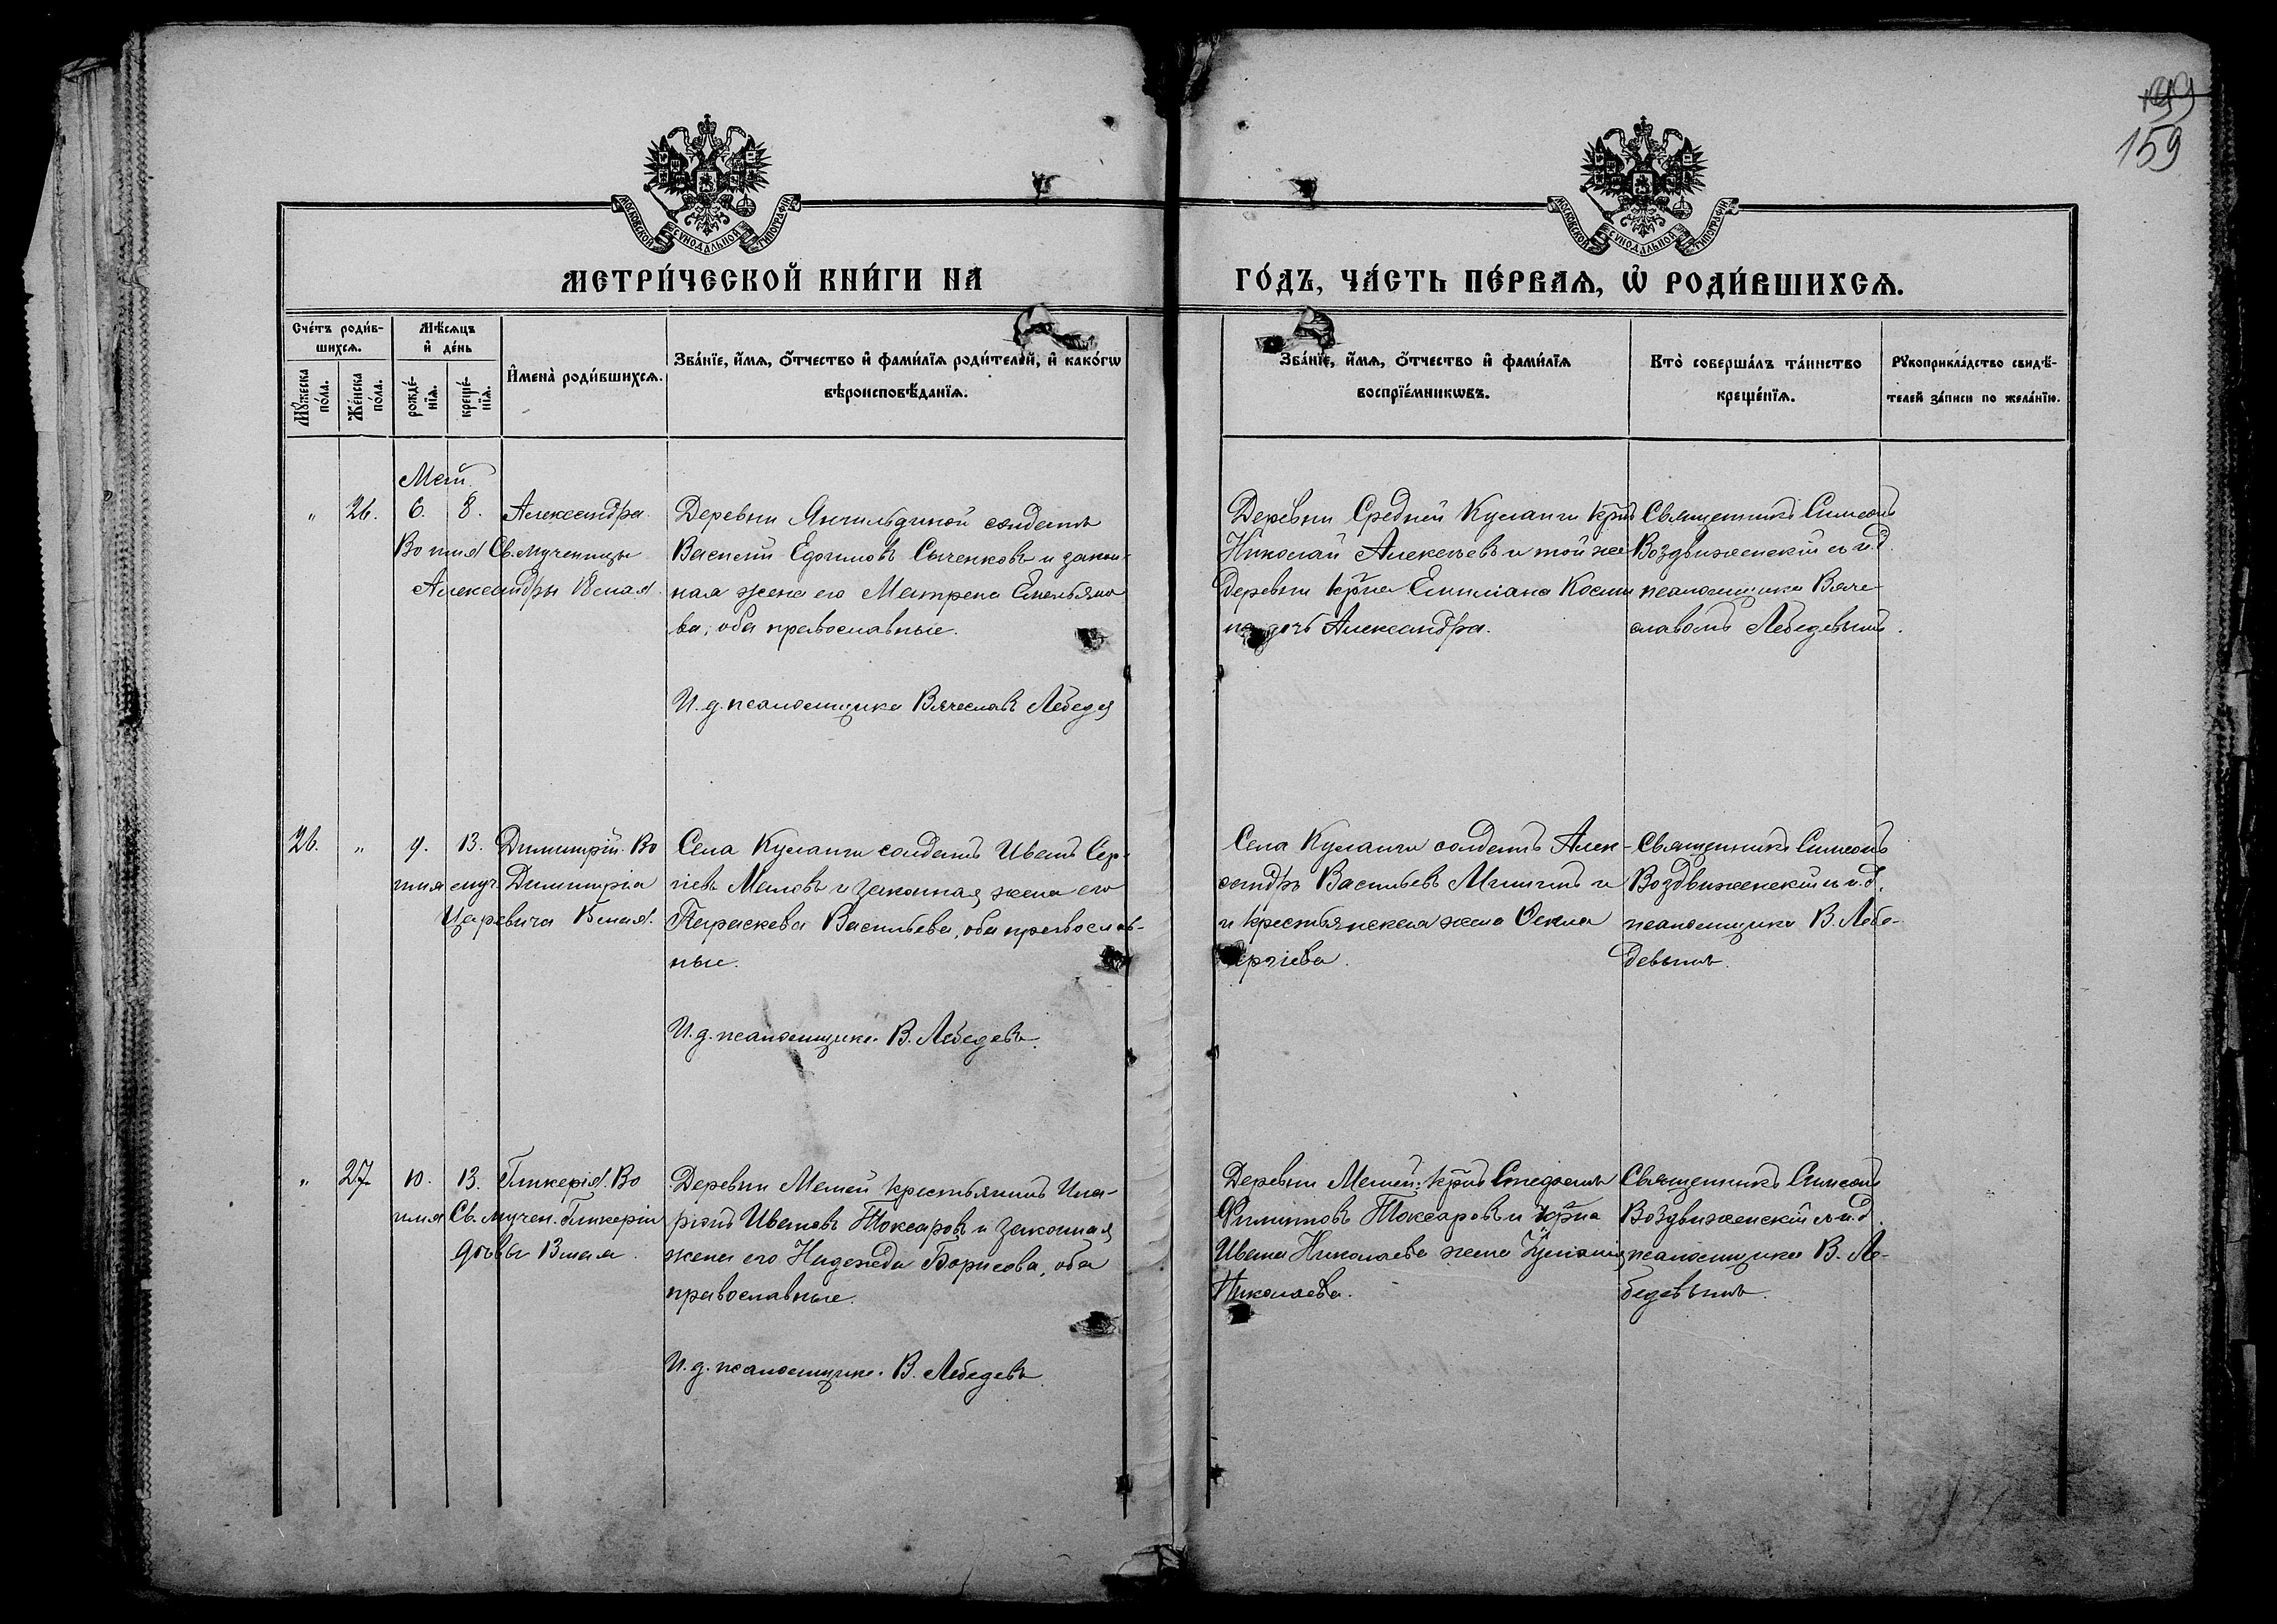 159
МОСКОВСКОЙ СѴНОДАЛЬНОЙ ТИПОГРАФІИ
МОСКОВСКОЙ СѴНОДАЛЬНОЙ ТИПОГРАФІИ
МЕТРИ́ЧЕСКОЙ КНИ́ГИ НА
ГО́ДЪ, ЧА́СТЬ ПЕ́РВАѦ, Ѡ҆ РОДИ́ВШИХСѦ.
Сче́тъ роди́в-
шихсѧ.
Мѣ́сѧцъ
и҆ де́нь
Мꙋ́жеска по́ла.
Же́нска по́ла.
рожде́-
нїѧ.
креще́-
нїѧ.
И҆мена̀ роди́вшихсѧ.
Зва́нїе, и҆́мѧ, ѻ҆́тчество и҆ фами́лїѧ роди́телей, и҆ како́гѡ
вѣроисповѣ́данїѧ.
Зва́нїе, и҆́мѧ, ѻ҆́тчество и҆ фами́лїѧ
воспрїе́мникѡвъ.
Кто̀ соверша́лъ та́инство
креще́нїѧ.
Рꙋкоприкла́дство свидѣ́-
телей за́писи по жела́нїю.
Май.
" 26. 6. 8. Александра.
Во имя Св. мученицы
Александры 18 мая.
Деревни Янчильдиной солдатъ
Василій Ефимовъ Сыченковъ и закон-
ная жена его Матрена Емельяно
ва, оба православные.
И. д. псаломщика Вячеславъ Лебедев
Деревни Средней Куланги крнъ
Николай Алексѣевъ и той же
деревни крна Емиліана Косми
на дочь Александра.
Священникъ Симеонъ
Воздвиженскій съ и. д.
псаломщика Вяче-
славомъ Лебедевымъ.
26. " 9. 13. Димитрій. Во
имя муч. Димитрія
Царевича 15 мая.
Села Куланги солдатъ Иванъ Сер-
гіевъ Маловъ и законная жена его
Параскева Васильева, оба православ-
ные.
И. д. псаломщика В. Лебедевъ.
Села Куланги солдатъ Алек-
сандръ Васильевъ Мишинъ и
и крестьянская жена Ѳекла
Сергіева.
Священникъ Симеонъ
Воздвиженскій и и. д.
псаломщика В. Лебе-
девымъ.
" 27 10. 13. Гликерія. Во
имя Св. мучен. Гликеріи
дѣвы 13 мая.
Деревни Мамей крестьянинъ Ила-
ріонъ Ивановъ Токсаровъ и законная
жена его Надежда Борисова, оба
православные.
И. д. псаломщика В. Лебедевъ.
Деревни Мамей: крнъ
Филипповъ Токсаровъ и крна
Ивана Николаева жена Іуліанія
Николаева.
Священникъ Симеонъ
Воздвиженскій съ и. д.
псаломщика В. Ле-
бедевымъ.